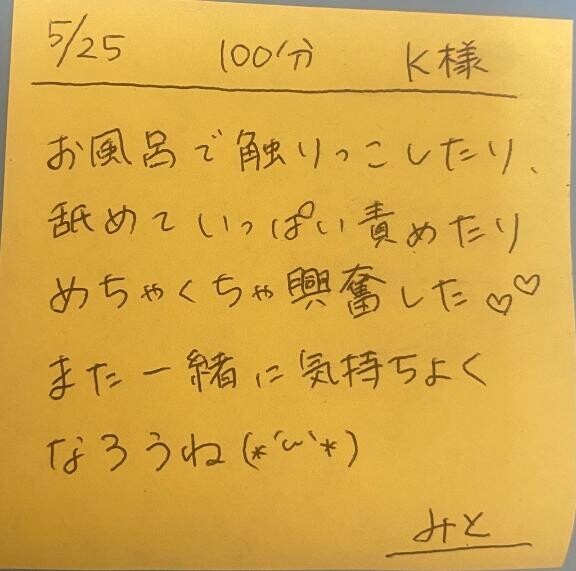 5/25 100分 K様
お風呂で触りっこしたり、
舐めていっぱい責めたり
めちゃくちゃ興奮した♡♡
また一緒に気持ちよく
なろうね(*´ω`*)
みと